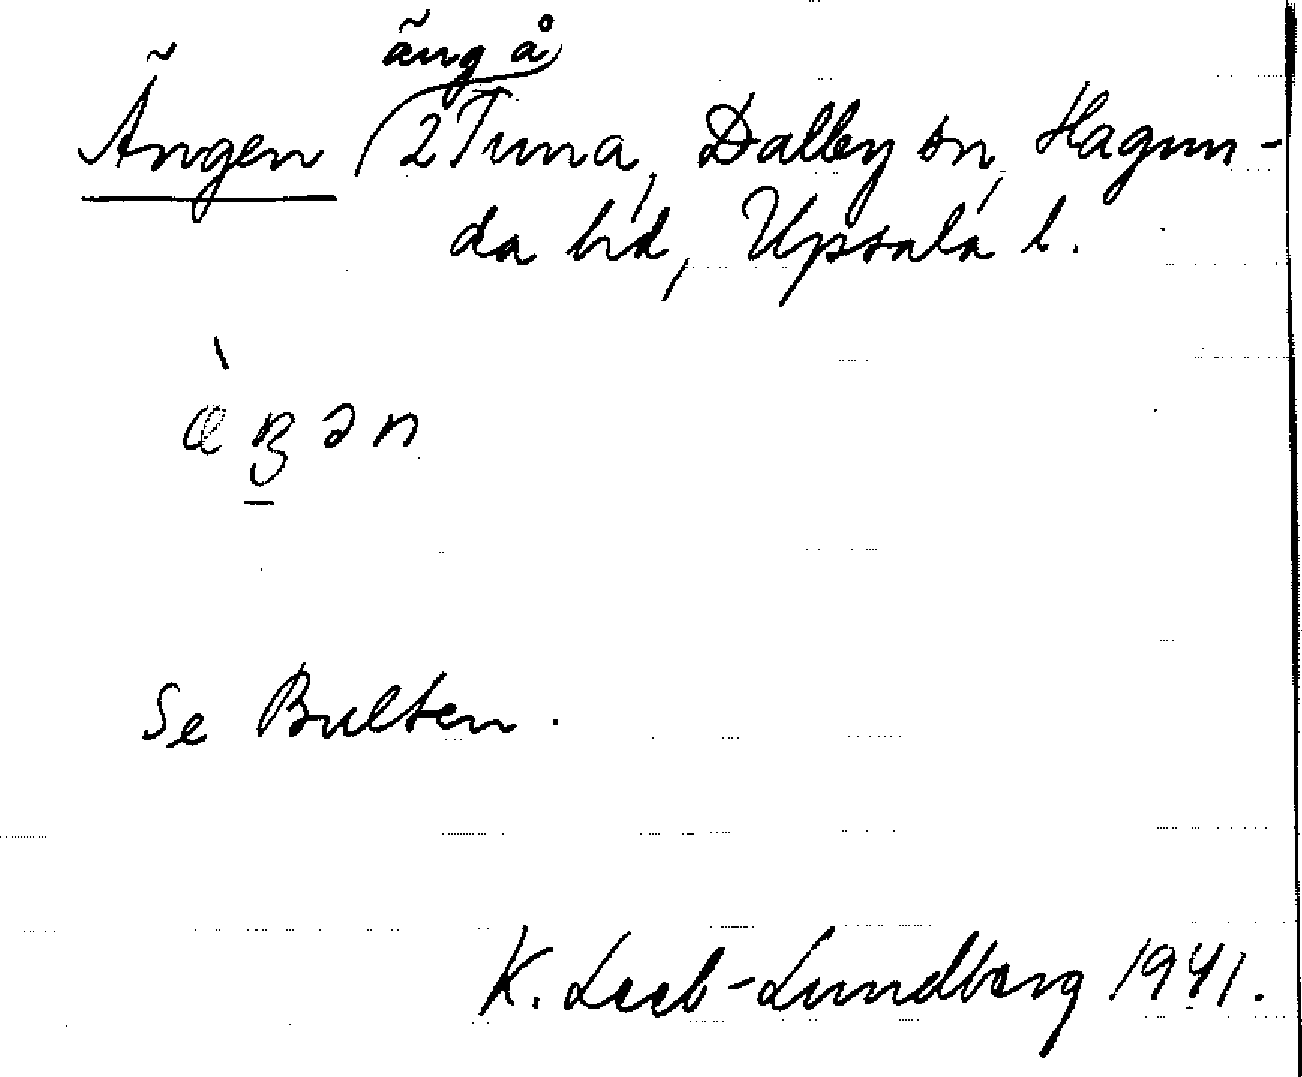 äng å
Ängen 2 Tuna, Dalby sn, Hagun-
da hd, Upsala l.
Se Bulten.
K. Leeb-Lundberg 1941.